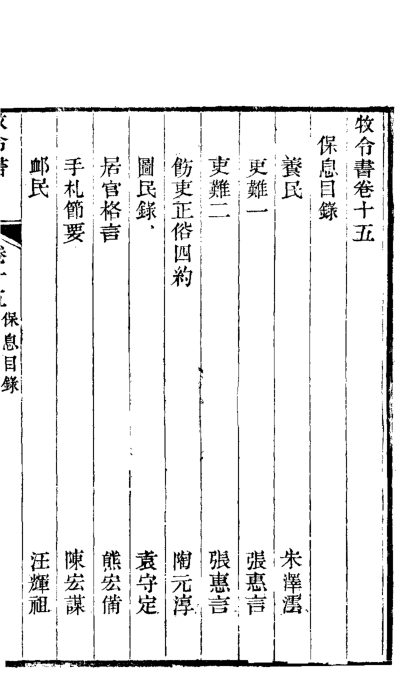 牧令書卷十五
保息目錄
養民 朱澤澐
吏難一 張惠言
吏難二 張惠言
飭吏正俗四約 陶元淳
圖民錄 袁守定
居官格言 熊宏備
手札節要 陳宏謀
䘏民 汪輝祖
牧令書 卷十五 保息目錄